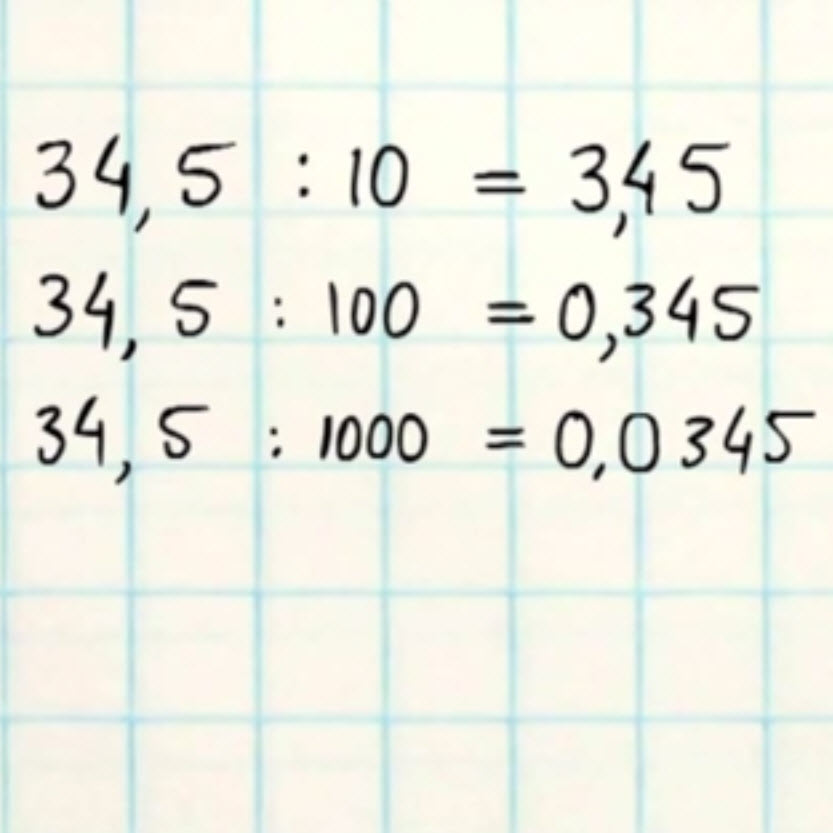 34,5 : 10 = 3,45
34,5 : 100 = 0,345
34,5 : 1000 = 0,0345